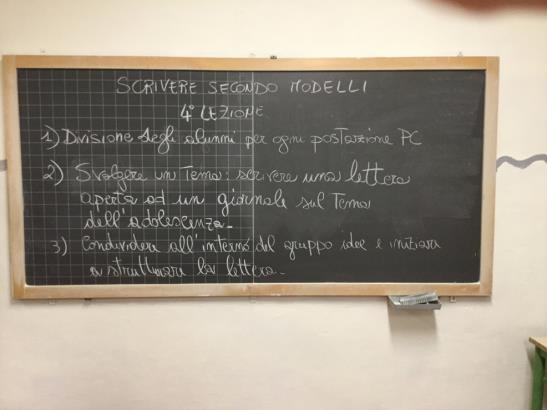 SCRIVERE SECONDO MODELLI
4° LEZIONE
1) Divisione degli alunni per ogni postazione PC
2) Svolgere un Tema: scrivere una lettera
aperta ad un giornale sul Tema
dell'adolescenza.
3) Condividere all'interno del gruppo idee e iniziare
a strutturare la lettera.